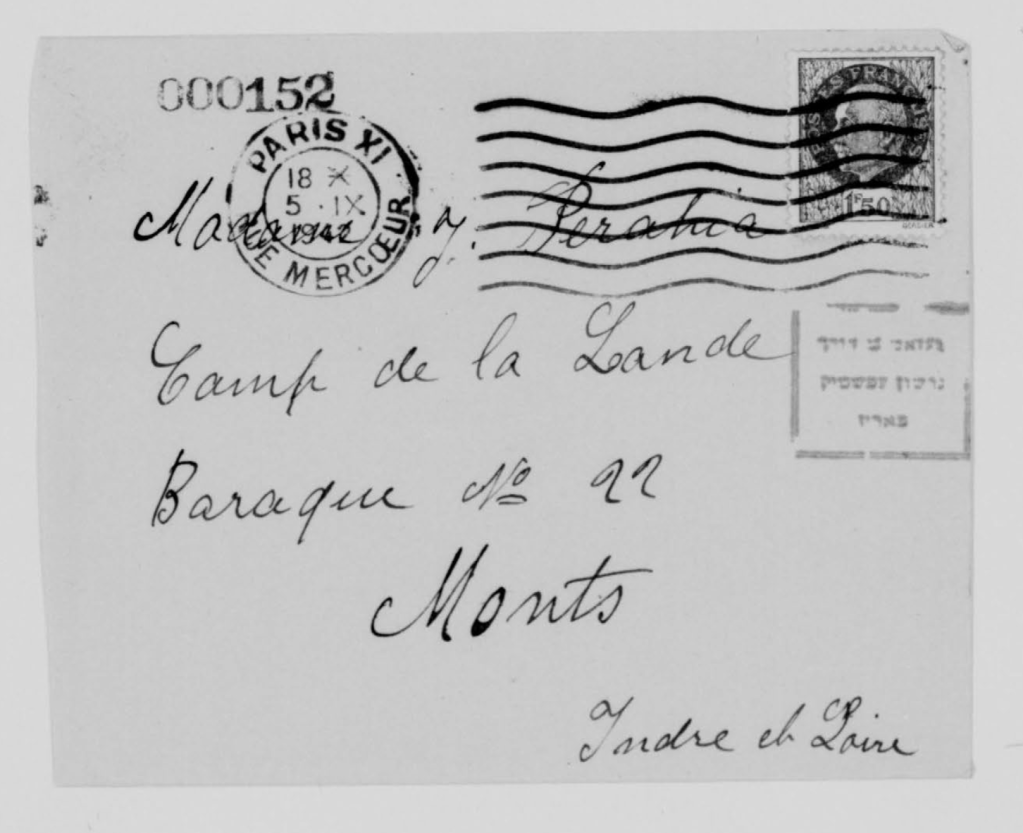 000152
PARIS XI
18 X
5 · IX
1942
RUE MERCŒUR
POSTES FRANÇAISES
1F50
Madame J. Perahia
Camp de la Lande
Baraque No 22
Monts
Indre et Loire
פאריז